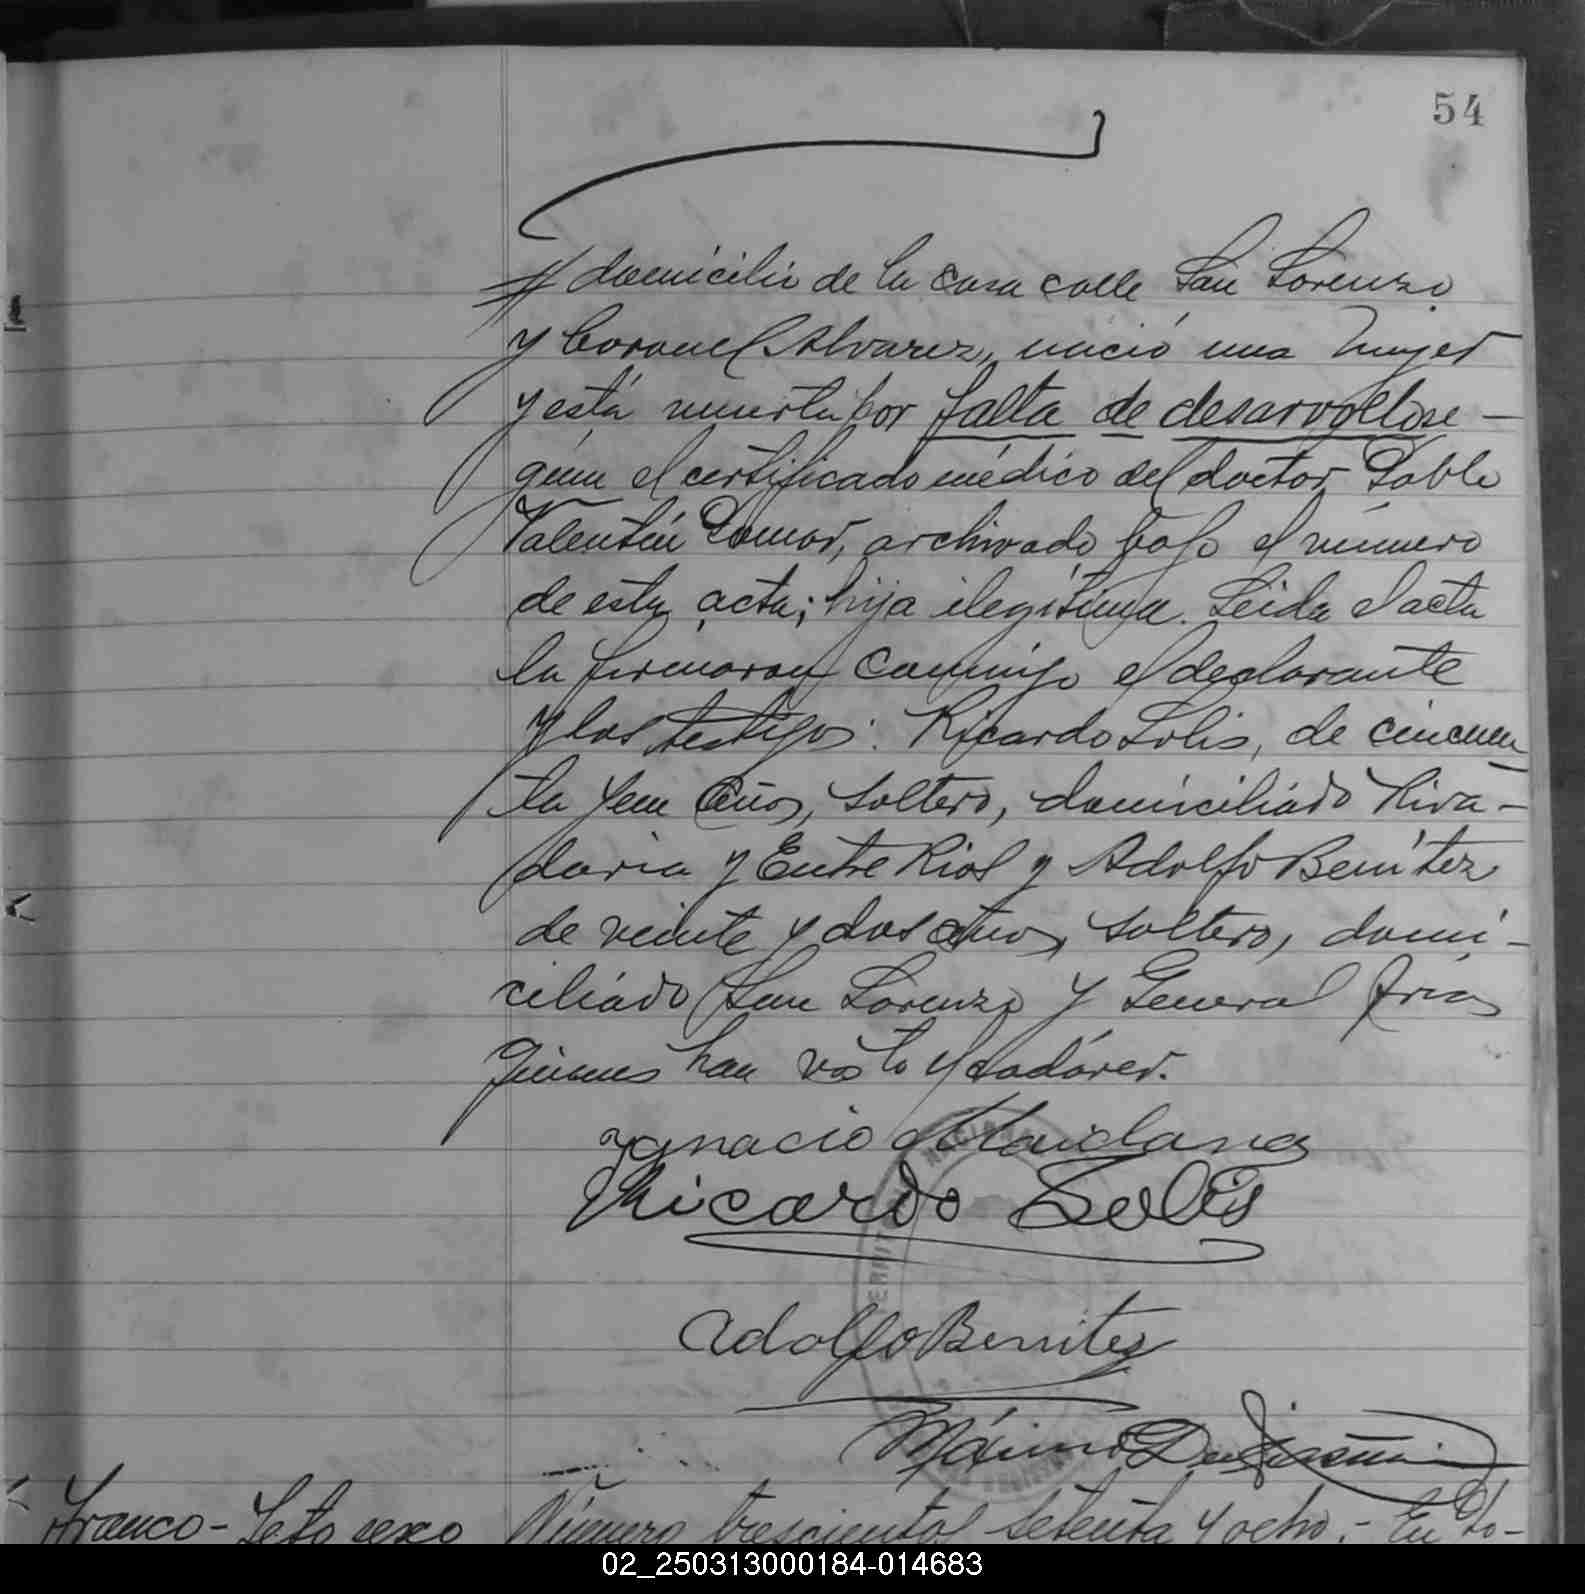 54
domicilio de la casa calle San Lorenzo
y Coronel Alvarez, nació una mujer
y está muerta por falta de desarvollo se-
gún el certificado médico del doctor Pablo
Valentín, archivado bajo el número
de esta acta; hija ilegítima. Leida el acta
la firmaron conmigo el declarante
y los testigos: Ricardo Solis, de cincuen
ta y un años, soltero, domiciliado Riva-
davia y Entre Rios y Adolfo Benítez
de veinte y dos años, soltero, domi-
ciliado San Lorenzo y General Frías
quienes han visto el cadáver.
Ygnacio Maidana
Ricardo Solis
TERRITORIO NACIONAL
Adolfo Benitez
Máximo
Franco - Feto sexo Número trescientos setenta y ocho.- En Po-
02_250313000184-014683